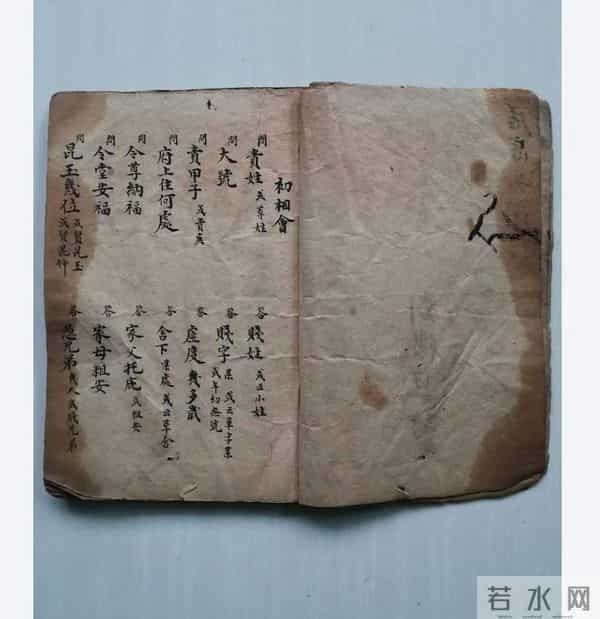 初相會
問 貴姓 或尊姓
答 賤姓 或云小姓
問 大號
答 賤字某 或云草字某 或年幼無號
問 貴甲子 或貴庚
答 虛度幾多歲
問 府上住何處
答 舍下某處 或云草舍
問 令尊納福
答 家父托庇 或粗安
問 令堂安福
答 家母粗安
問 昆玉幾位 或賢昆玉 或賢昆仲
答 愚兄弟幾人 或弟兄弟
若水网